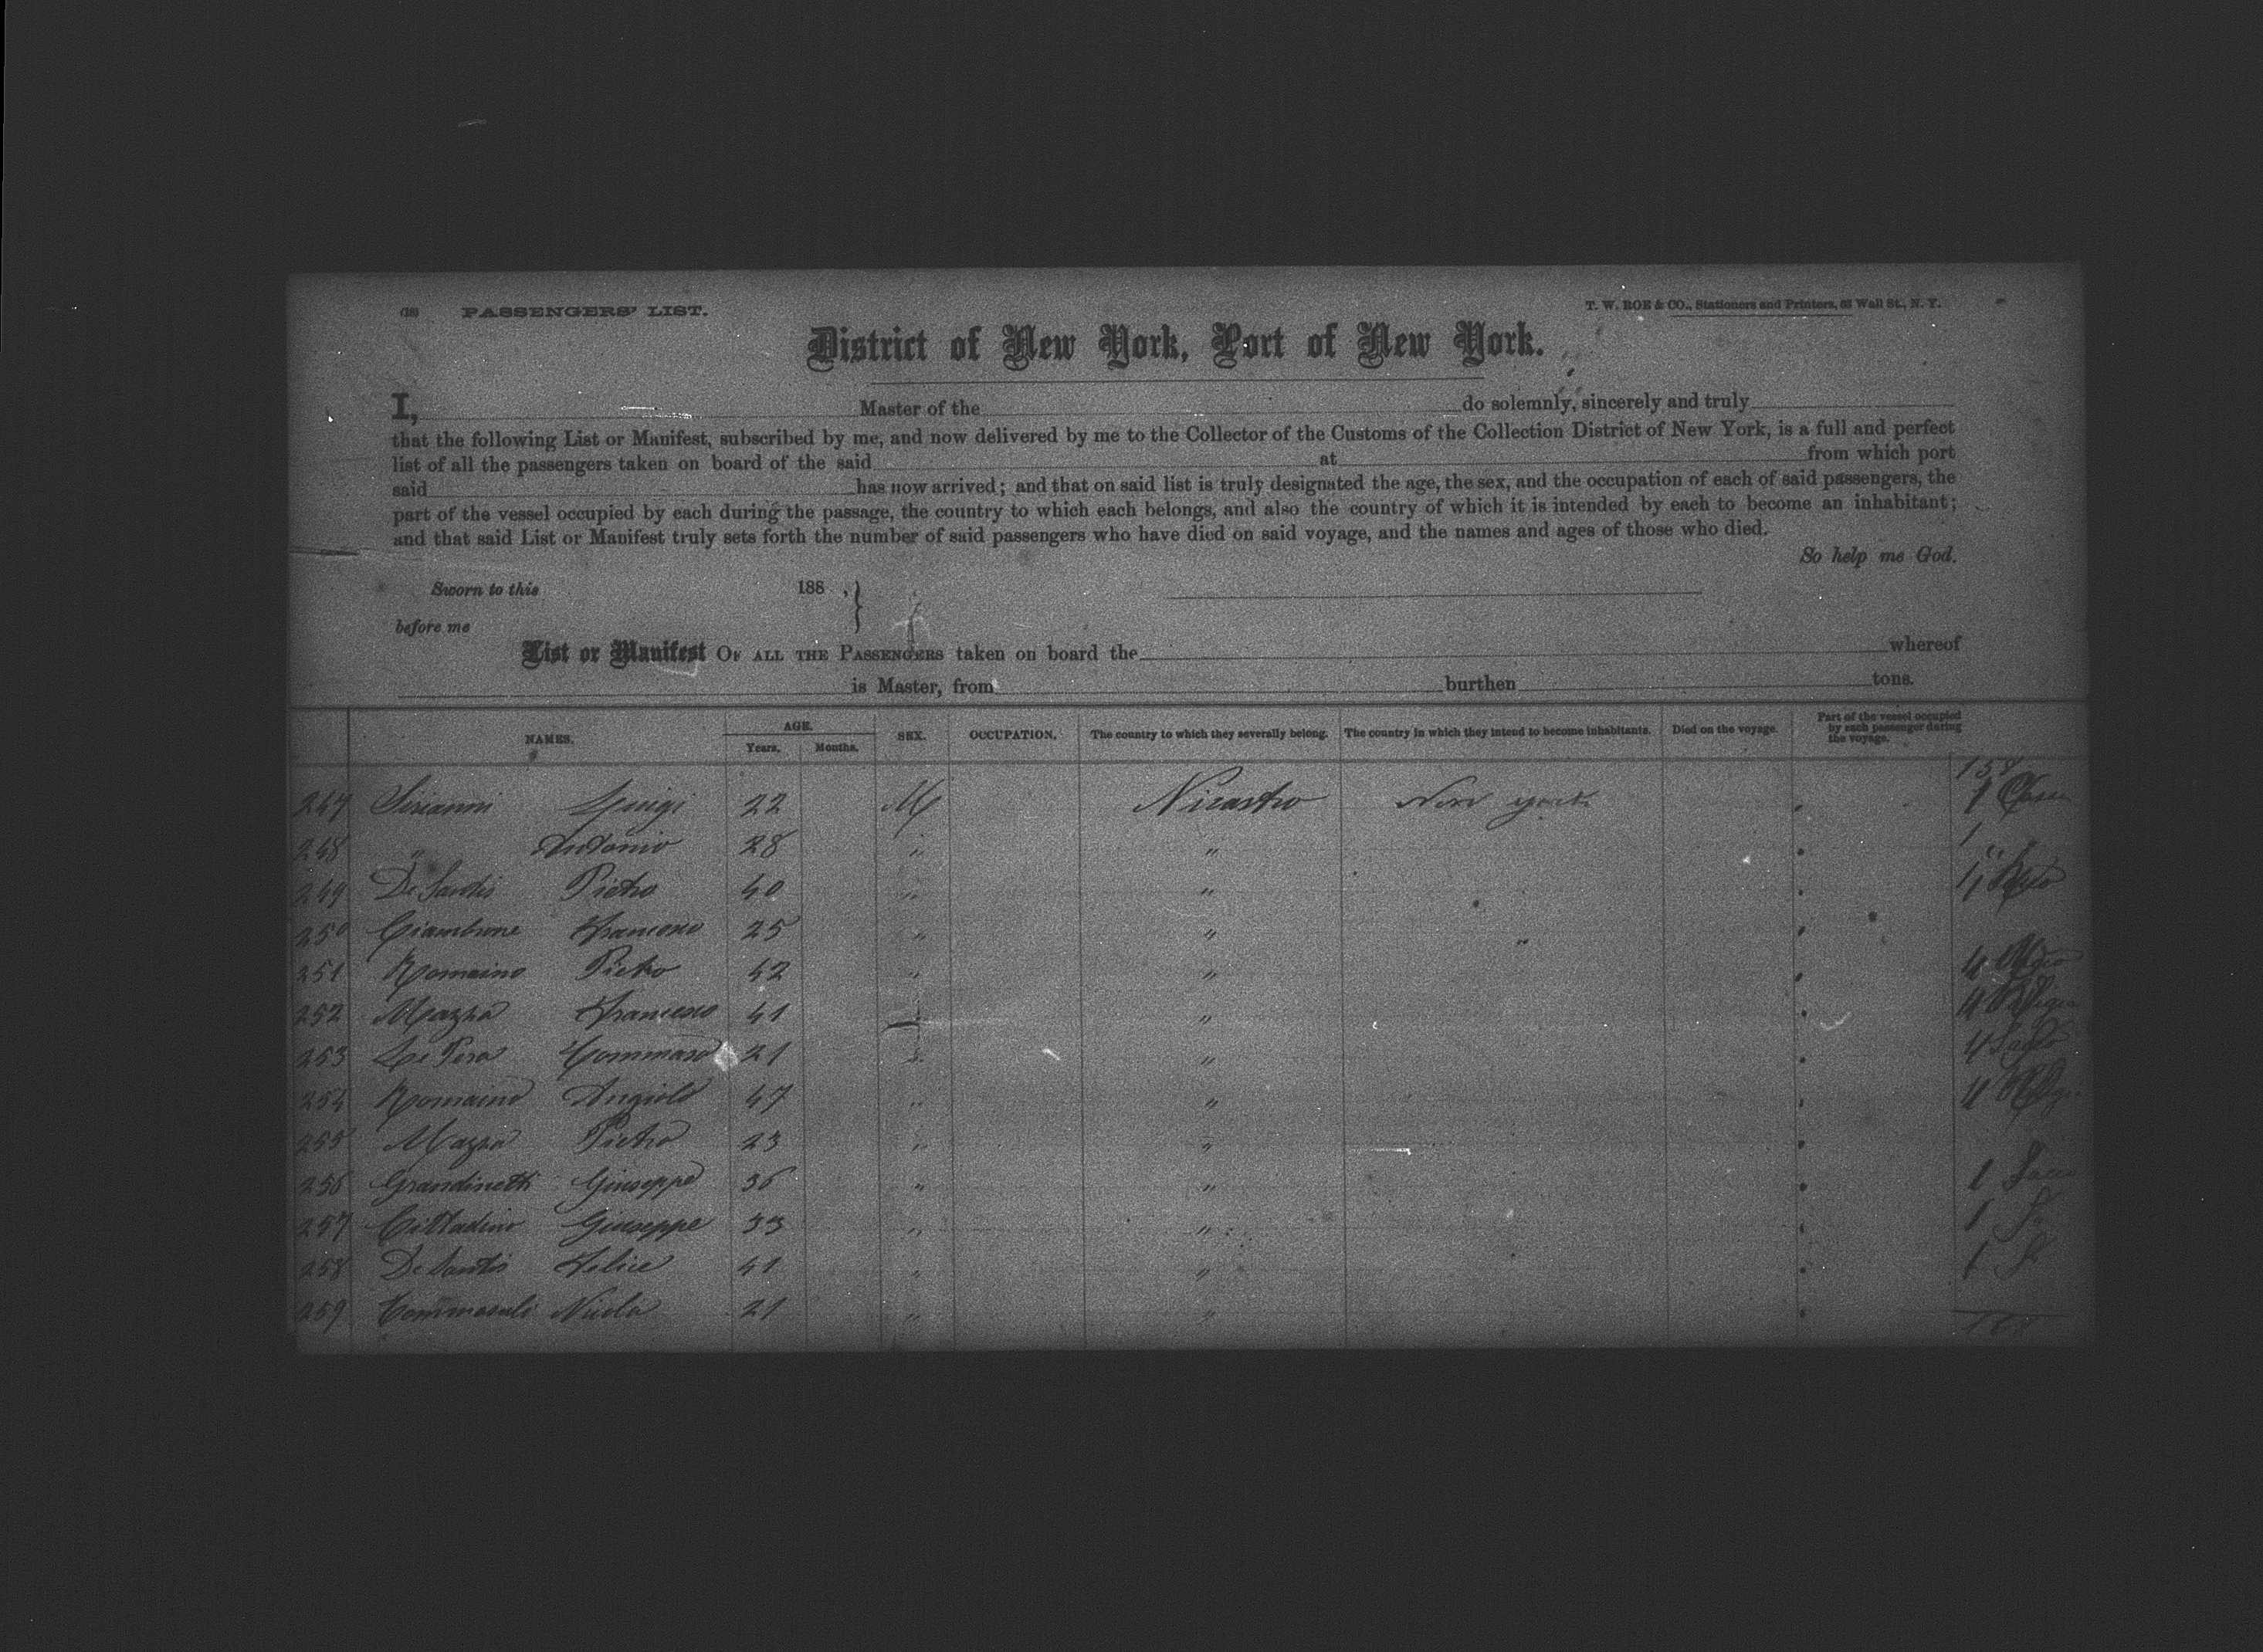 (18) PASSENGERS' LIST. T. W. ROE & CO., Stationers and Printers, 63 Wall St., N. Y.
District of New York, Port of New York.
I, Master of the do solemnly, sincerely and truly
that the following List or Manifest, subscribed by me, and now delivered by me to the Collector of the Customs of the Collection District of New York, is a full and perfect
list of all the passengers taken on board of the said at from which port
said has now arrived; and that on said list is truly designated the age, the sex, and the occupation of each of said passengers, the
part of the vessel occupied by each during the passage, the country to which each belongs, and also the country of which it is intended by each to become an inhabitant;
and that said List or Manifest truly sets forth the number of said passengers who have died on said voyage, and the names and ages of those who died.
So help me God.
Sworn to this 188 , }
before me
List or Manifest OF ALL THE PASSENGERS taken on board the whereof
is Master, from burthen tons.
NAMES. AGE. Years. Months. SEX. OCCUPATION. The country to which they severally belong. The country in which they intend to become inhabitants. Died on the voyage. Part of the vessel occupied by each passenger during the voyage.
247 Sirianni Luigi 22 M Nicastro New York
248 " Antonio 28 " "
249 De Santis Pietro 40 " "
250 Giambrone Francesco 25 " " "
251 Romaino Pietro 42 " "
252 Mazza Francesco 41 " "
253 Le Pera Tommaso 21 " "
254 Romaino Angiolo 47 " "
255 Mazza Pietro 23 " "
256 Grandinetti Giuseppe 36 " "
257 Cittadino Giuseppe 33 " "
258 De Santis Felice 41 " "
259 Nicola 21 " "